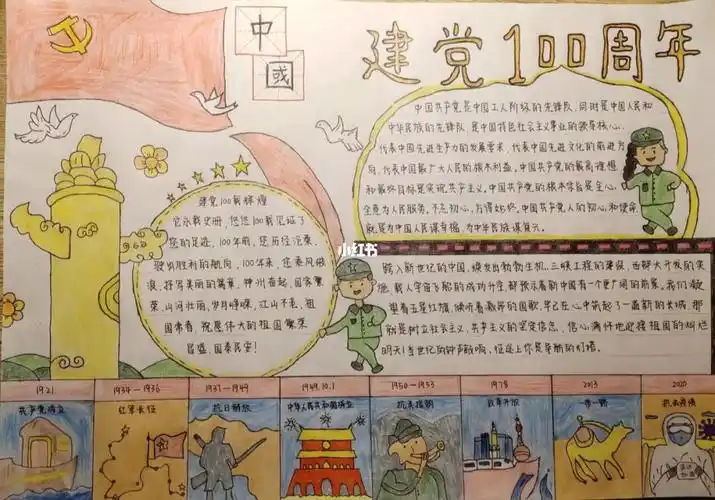 中
國
建党100周年
中国共产党是中国工人阶级的先锋队,同时是中国人民和
中华民族的先锋队,是中国特色社会主义事业的领导核心,
代表中国先进生产力的发展要求,代表中国先进文化的前进方
向,代表中国最广大人民的根本利益。中国共产党的最高理想
和最终目标是实现共产主义。中国共产党的根本宗旨是全心
全意为人民服务。不忘初心,方得始终。中国共产党人的初心和使命,
就是为中国人民谋幸福,为中华民族谋复兴。
建党100载辉煌
它永载史册,悠悠100载见证了
您的足迹,100年前,您历经沧桑,
驶出胜利的航向,100年来,您乘风破
浪,抒写美丽的篇章,神州奋起,国家繁
荣,山河壮丽,岁月峥嵘,江山不老,祖
国常春,祝愿伟大的祖国繁荣
昌盛,国泰民安!
小红书
踏入新世纪的中国,焕发出勃勃生机,三峡工程的建设,西部大开发的实
施,载人宇宙飞船的成功升空,都预示着新中国有一个更广阔的前景。我们凝
望着五星红旗,倾听着激昂的国歌,早已在心中筑起了一座新的长城,那
就是树立社会主义、共产主义的坚定信念,信心满怀地迎接祖国的灿烂
明天!当世纪的钟声敲响,
1921
1934-1936
1937-1949
1949.10.1
1950-1953
1978
2013
2020
共产党成立
红军长征
抗日解放
中华人民共和国成立
抗美援朝
改革开放
一带一路
抗击疫情